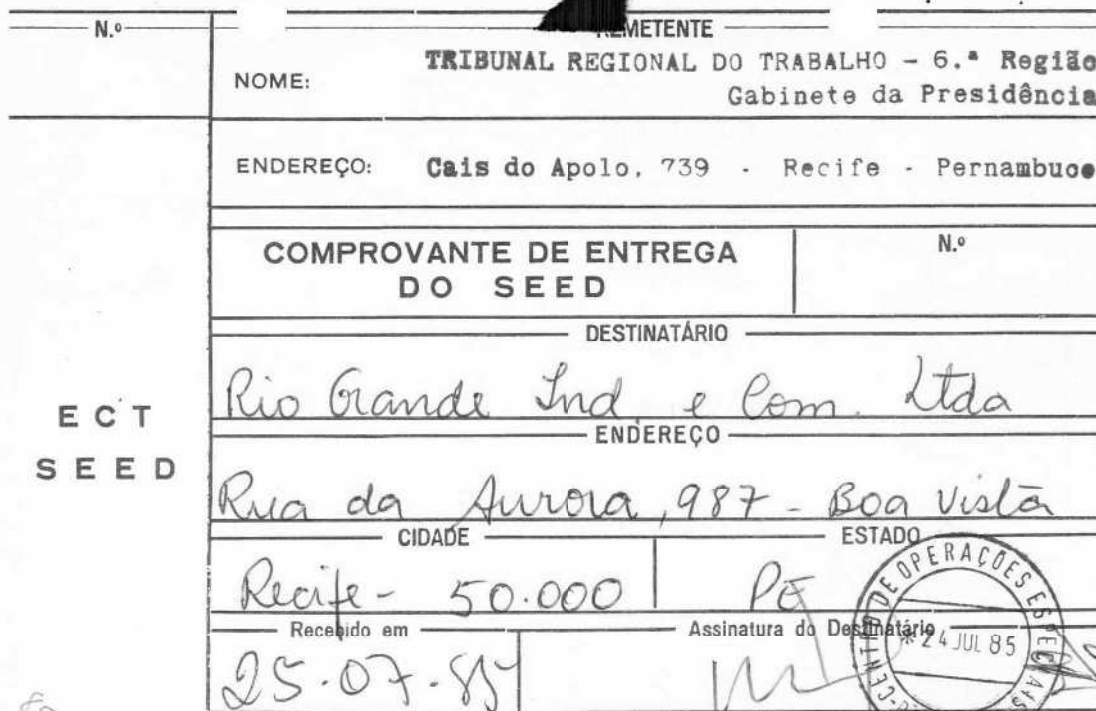 N.º
REMETENTE
NOME: TRIBUNAL REGIONAL DO TRABALHO - 6.ª Região
Gabinete da Presidência
ENDEREÇO: Cais do Apolo, 739 - Recife - Pernambuco
COMPROVANTE DE ENTREGA
DO SEED
N.º
DESTINATÁRIO
Rio Grande Ind. e Com. Ltda
ECT
SEED
ENDEREÇO
Rua da Aurora, 987 - Boa Vista
CIDADE
ESTADO
Recife - 50.000
PE
Recebido em
Assinatura do Destinatário
25.07.85
CENTRO DE OPERAÇÕES ESPECIAIS
*24 JUL 85